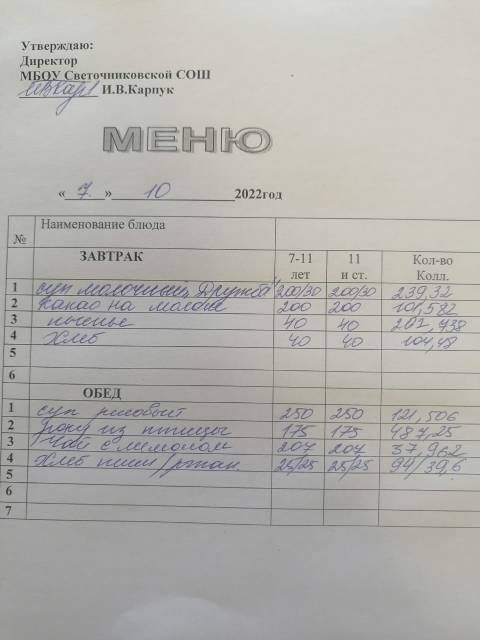 Утверждаю:
Директор
МБОУ Светочниковской СОШ
И.В.Карпук
МЕНЮ
« 7 » 10 2022год
№ Наименование блюда
ЗАВТРАК 7-11 лет 11 и ст. Кол-во Колл.
1 суп молочный "Дружба" 200/30 200/30 239,32
2 какао на молоке 200 200 101,582
3 печенье 40 40 207,938
4 хлеб 40 40 104,48
5
6
ОБЕД
1 суп рисовый 250 250 121,506
2 рагу из птицы 175 175 487,25
3 чай с лимоном 207 207 37,962
4 хлеб пшен/ржан. 25/25 25/25 94/39,6
5
6
7